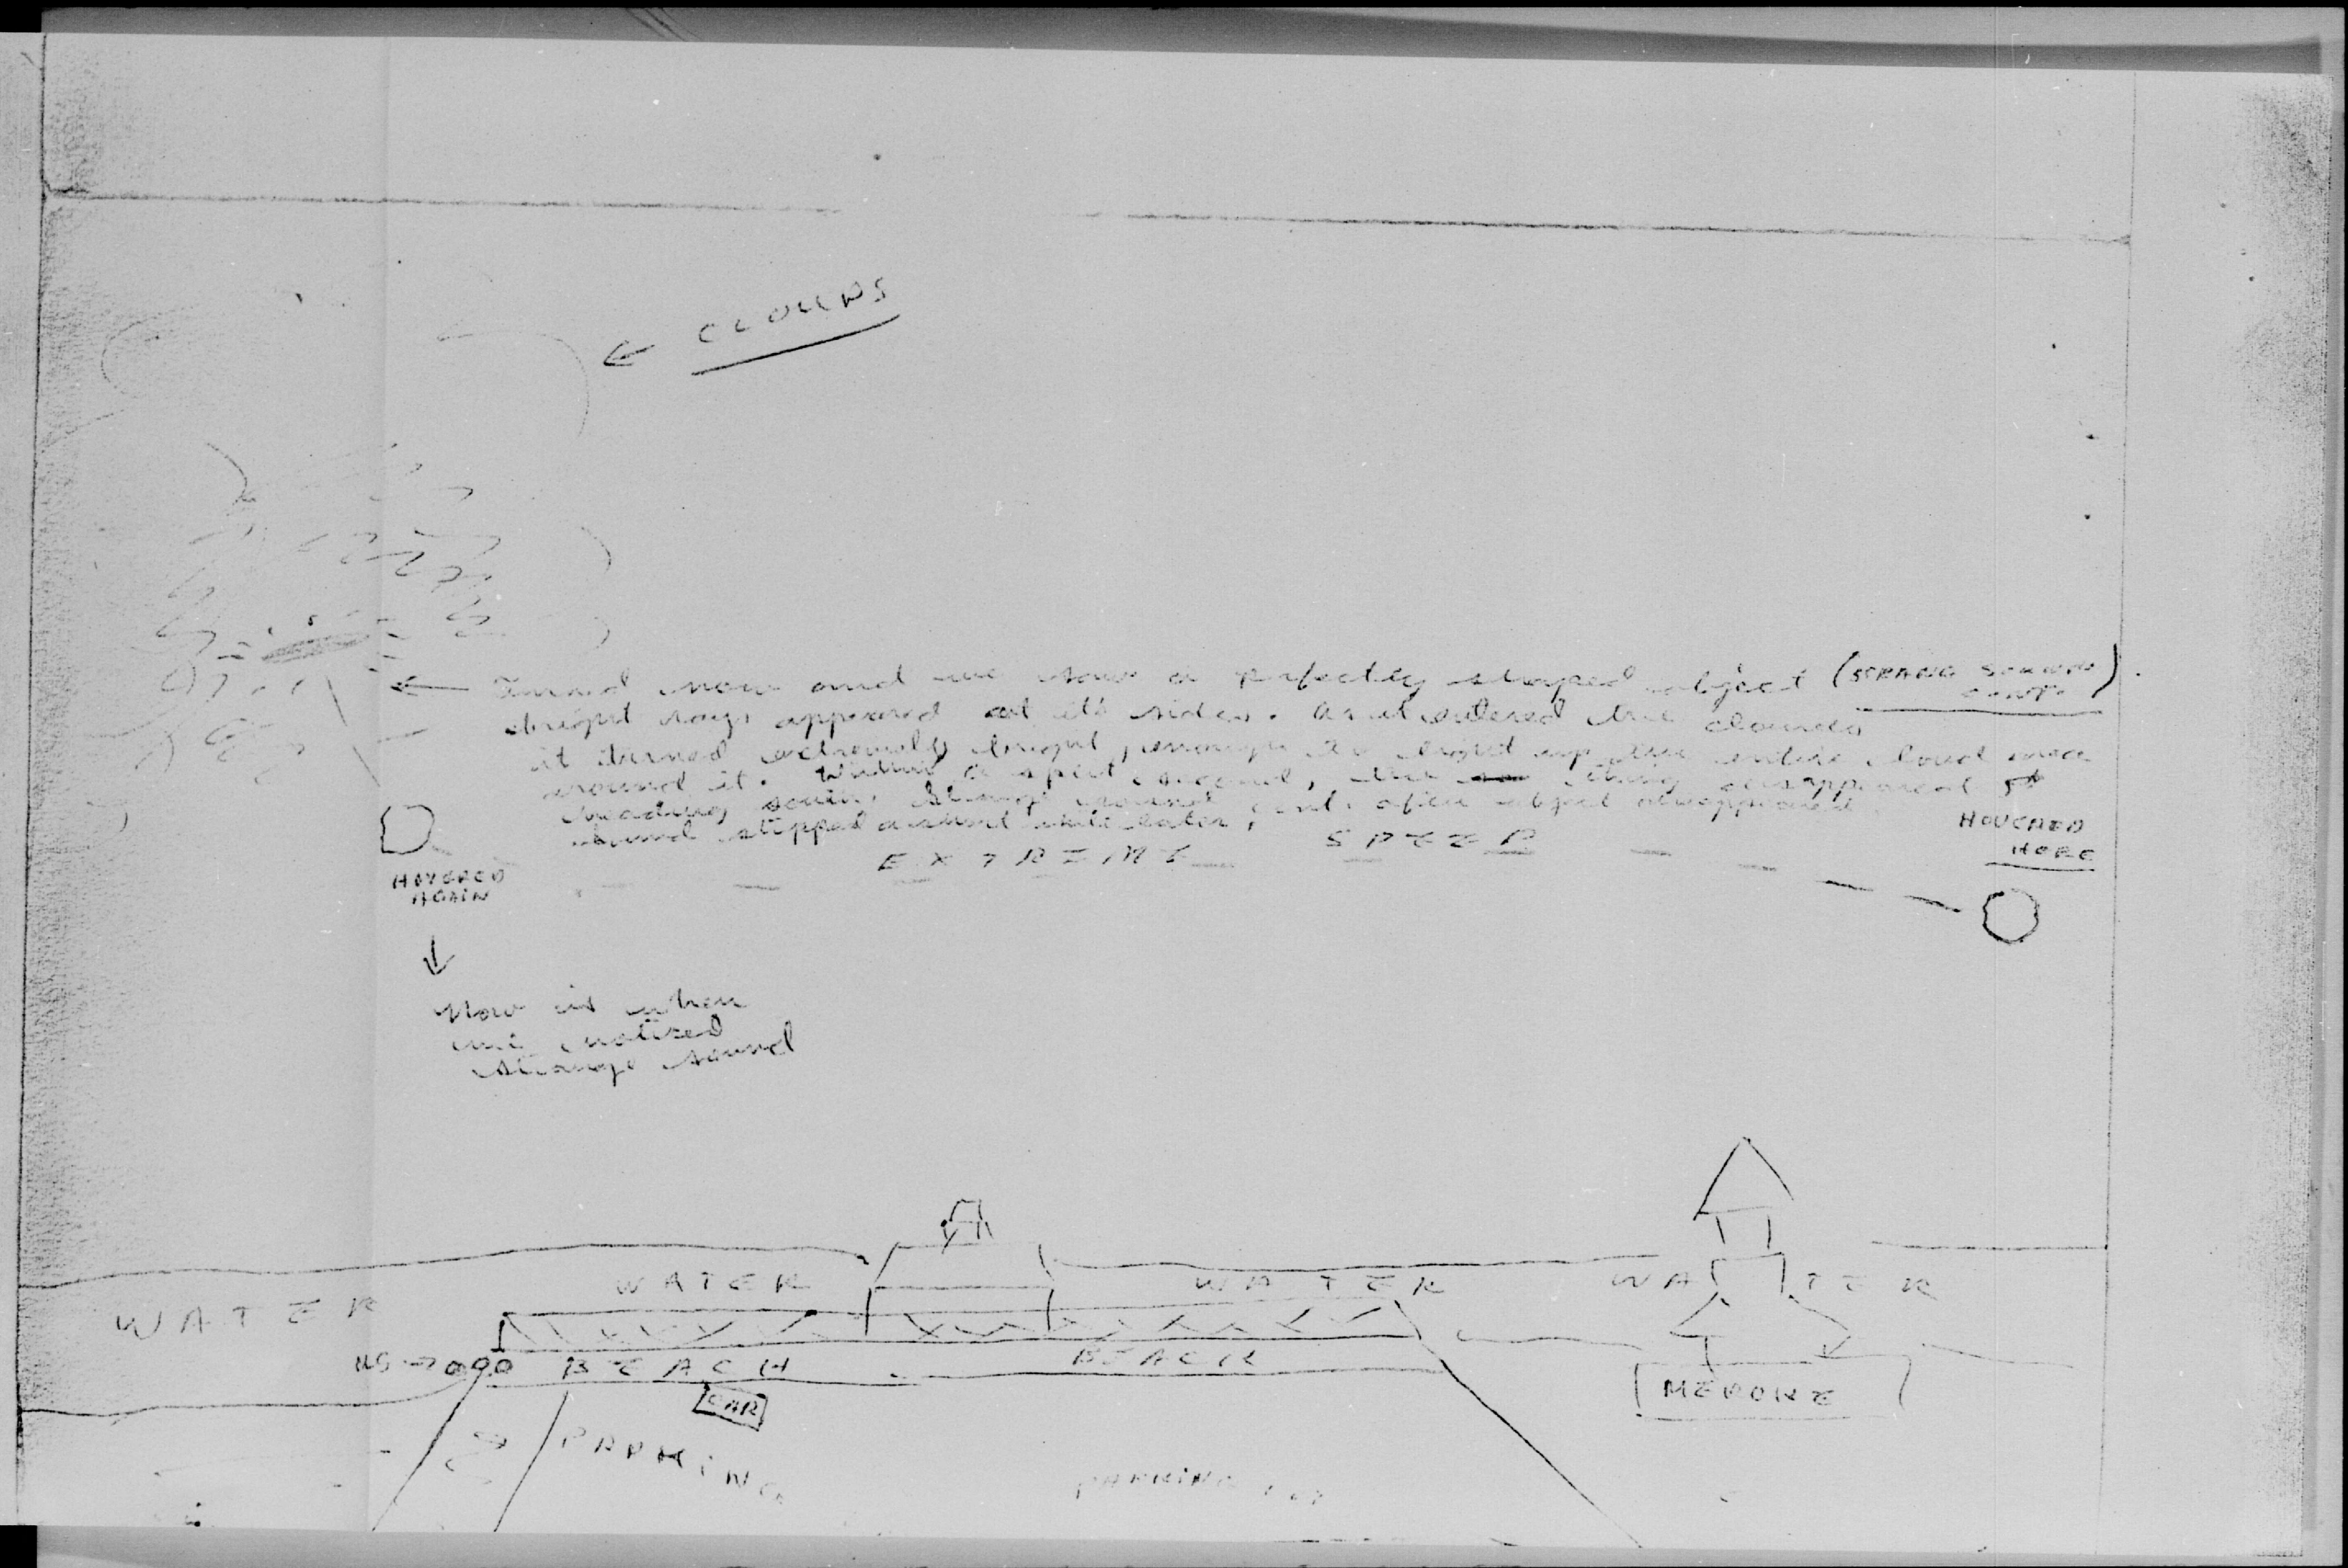 CLOUDS
Turned now and we saw a perfectly shaped object (STRANG SOUND
CONT.).
bright rays appeared at its sides. As it entered the clouds
it turned extremely bright, enough to light up the entire cloud area
around it. Within a split second, the thing disappeared
heading south. Strange sound cont. after object disappeared
sound stopped later,
EXTREME SPEED
HOVERED
HERE
HOVERED
AGAIN
Now is when
we notised
strange sound
WATER
WATER
WATER
WATER
US → BEACH
BEACH
CAR
MEROKE
PARKING
PARKING LOT